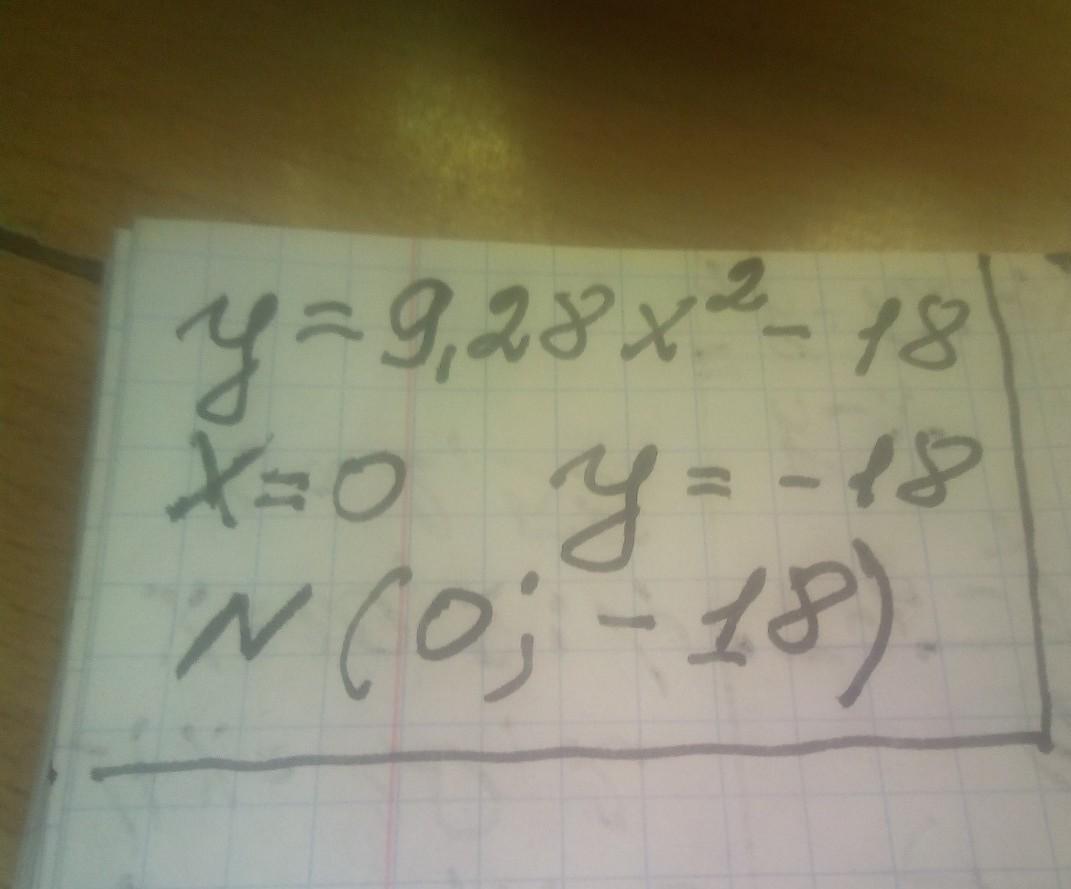 y = 9,28x² - 18
x = 0 y = -18
N (0; -18)